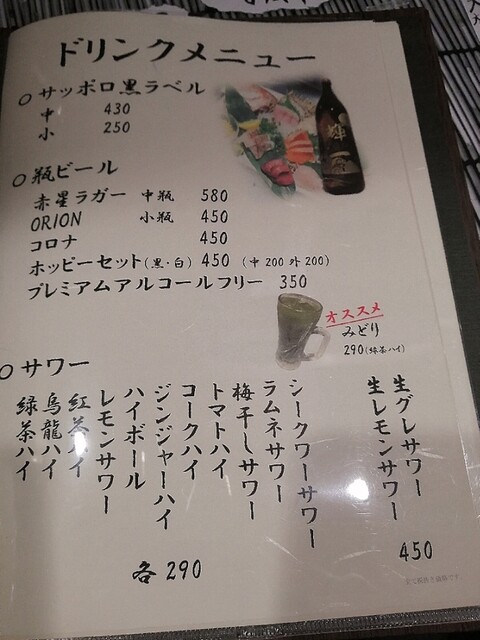 ドリンクメニュー
○ サッポロ黒ラベル
中 430
小 250
○ 瓶ビール
赤星ラガー 中瓶 580
ORION 小瓶 450
コロナ 450
ホッピーセット(黒・白) 450 (中200 外200)
プレミアムアルコールフリー 350
オススメ
みどり
290(緑茶ハイ)
○ サワー
生グレサワー
生レモンサワー
450
シークワーサワー
ラムネサワー
梅干しサワー
トマトハイ
コークハイ
ジンジャーハイ
ハイボール
レモンサワー
紅茶ハイ
烏龍ハイ
緑茶ハイ
各290